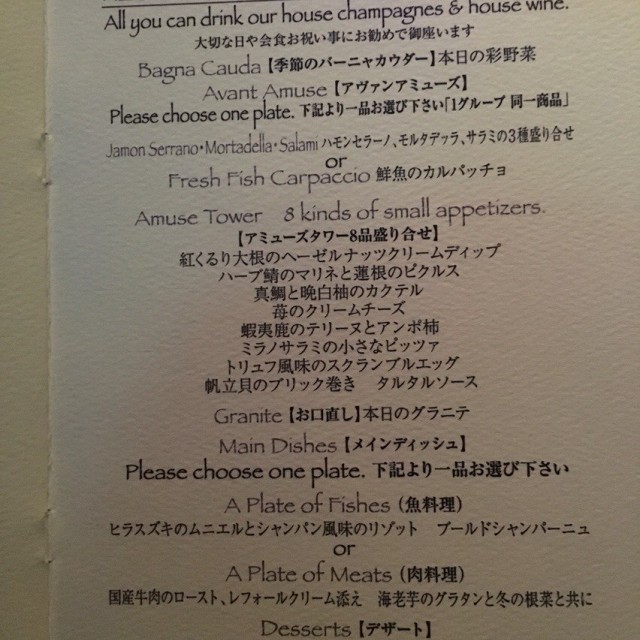 All you can drink our house champagnes & house wine.
大切な日や会食お祝い事にお勧めで御座います
Bagna Cauda【季節のバーニャカウダー】本日の彩野菜
Avant Amuse【アヴァンアミューズ】
Please choose one plate. 下記より一品お選び下さい「1グループ 同一商品」
Jamon Serrano・Mortadella・Salami ハモンセラーノ、モルタデッラ、サラミの3種盛り合せ
or
Fresh Fish Carpaccio 鮮魚のカルパッチョ
Amuse Tower 8 kinds of small appetizers.
【アミューズタワー8品盛り合せ】
紅くるり大根のヘーゼルナッツクリームディップ
ハーブ鯖のマリネと蓮根のピクルス
真鯛と晩白柚のカクテル
苺のクリームチーズ
蝦夷鹿のテリーヌとアンポ柿
ミラノサラミの小さなピッツァ
トリュフ風味のスクランブルエッグ
帆立貝のブリック巻き タルタルソース
Granite【お口直し】本日のグラニテ
Main Dishes【メインディッシュ】
Please choose one plate. 下記より一品お選び下さい
A Plate of Fishes (魚料理)
ヒラスズキのムニエルとシャンパン風味のリゾット ブールドシャンパーニュ
or
A Plate of Meats (肉料理)
国産牛肉のロースト、レフォールクリーム添え 海老芋のグラタンと冬の根菜と共に
Desserts【デザート】